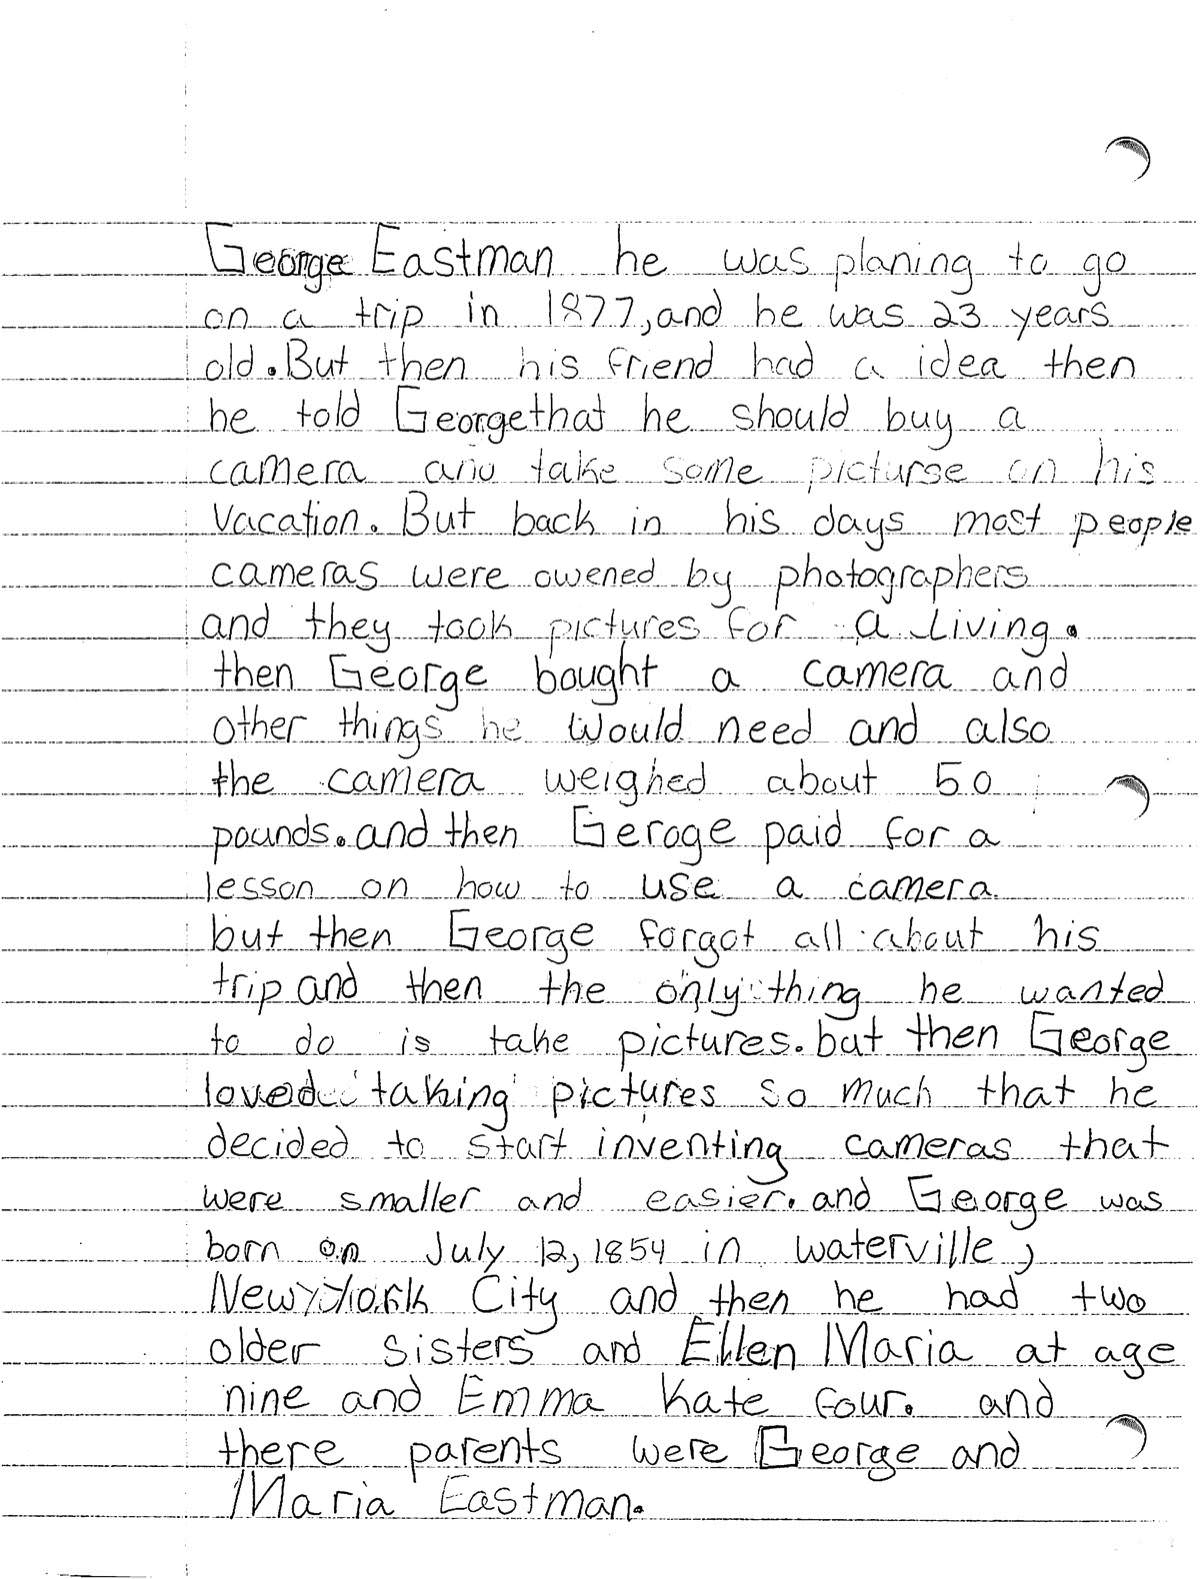 George Eastman he was planing to go
on a trip in 1877, and he was 23 years
old. But then his friend had a idea then
he told George that he should buy a
camera and take some picturse on his
vacation. But back in his days most people
cameras were owened by photographers
and they took pictures for a living.
then George bought a camera and
other things he would need and also
the camera weighed about 50
pounds. and then Geroge paid for a
lesson on how to use a camera
but then George forgot all about his
trip and then the only thing he wanted
to do is take pictures. but then George
loved taking pictures so much that he
decided to start inventing cameras that
were smaller and easier. and George was
born on July 12, 1854 in waterville,
New York City and then he had two
older sisters and Ellen Maria at age
nine and Emma Kate four. and
there parents were George and
Maria Eastman.